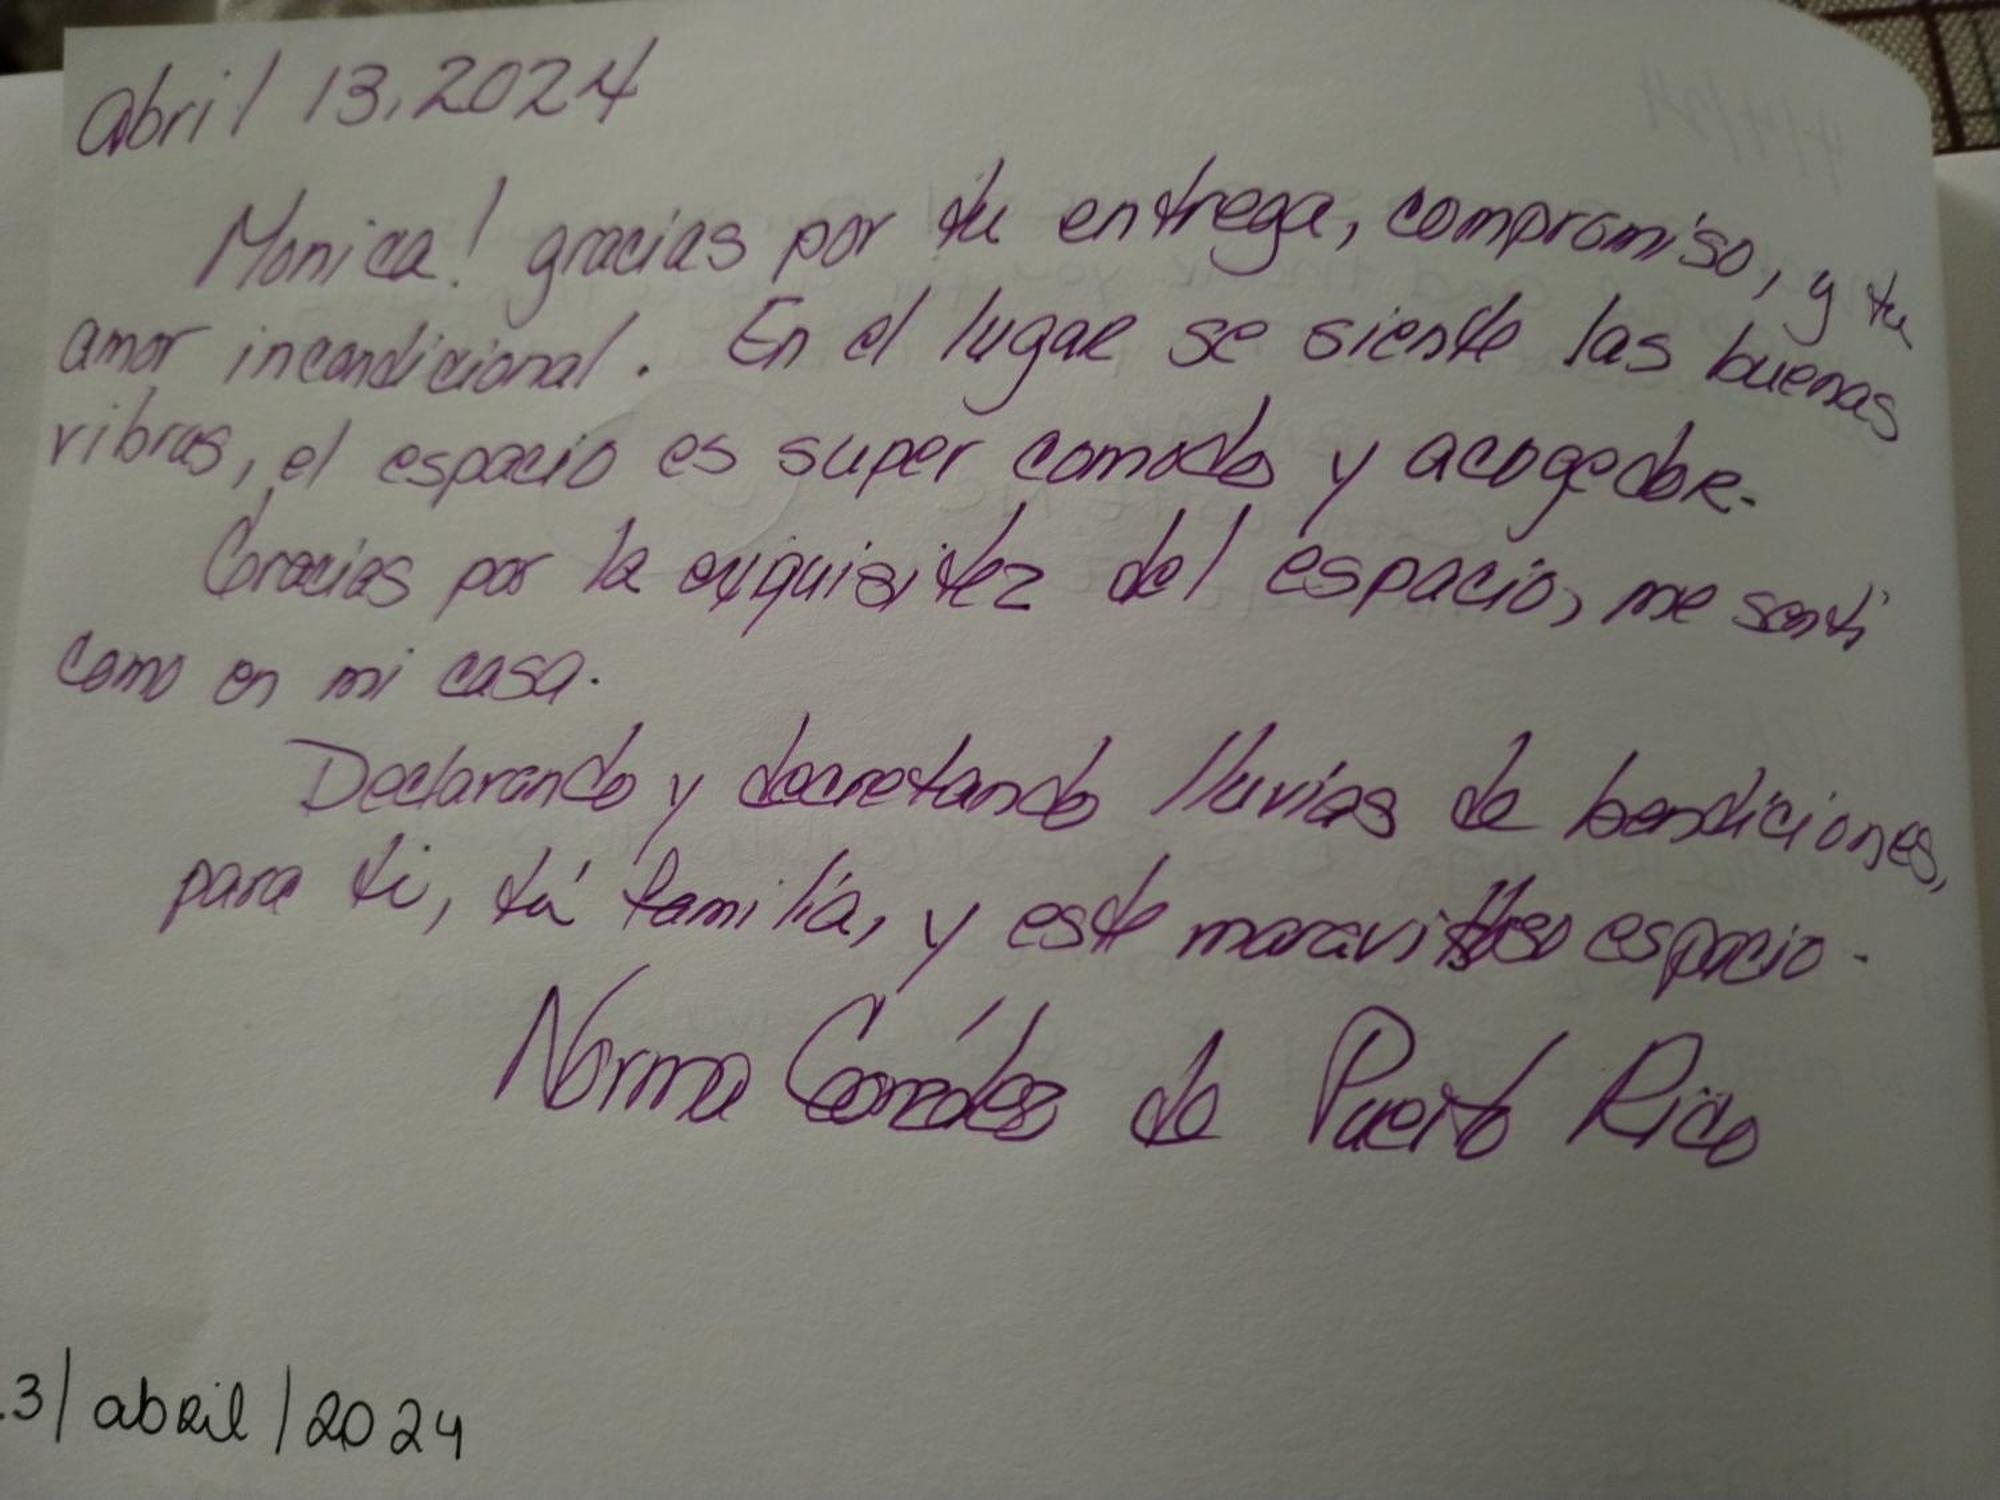 abril 13, 2024
Monica! gracias por tu entrega, compromiso, y tu
amor incondicional. En el lugar se siente las buenas
vibras, el espacio es super comodo y acogedor.
Gracias por la exquisitez del espacio, me sentí
como en mi casa.
Declarando y decretando lluvias de bendiciones,
para ti, tú familia, y este maravilloso espacio.
Norma de Puerto Rico
3/abril/2024